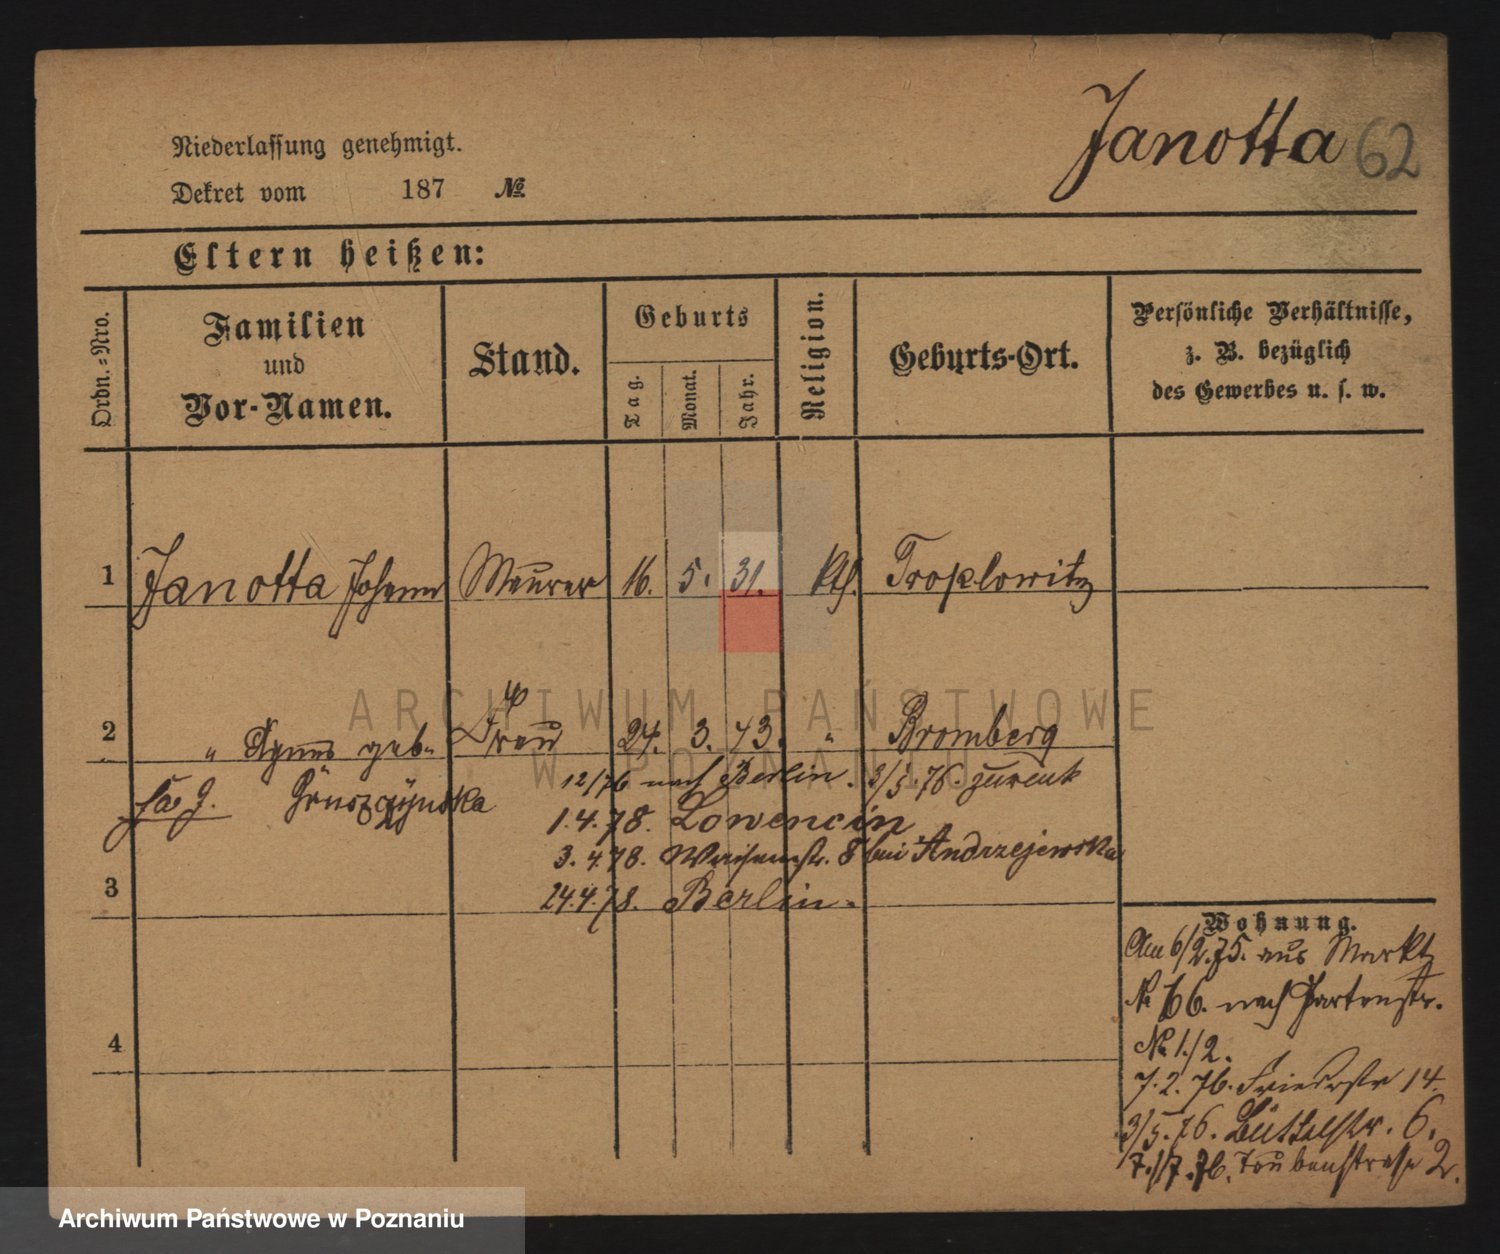 Janotta 62
Niederlassung genehmigt.
Dekret vom 187 №
Eltern heißen:
Ordn.-Nro.
Familien
und
Vor-Namen.
Stand.
Geburts
Tag.
Monat.
Jahr.
Religion.
Geburts-Ort.
Persönliche Verhältnisse,
z. B. bezüglich
des Gewerbes u. s. w.
1 Janotta Johann Maurer 16. 5. 31. kth. Troplowitz
2 " Agnes geb. Frau 24. 3. 43. " Bromberg
12/76 nach Berlin. 3/5.76. zurück
1.4.78. Lowencin
3.4.78. Waisenstr. 8 bei Andrzejewska
3 24.4.78. Berlin.
4
Wohnung.
Am 6/2.75. aus Markt
№ 66. nach Gartenstr.
№ 1/2.
7.2.76. 14.
3/5.76. Büttelstr. 6.
7./7.76. Taubenstrasse 2.
ARCHIWUM PAŃSTWOWE
W POZNANIU
Archiwum Państwowe w Poznaniu